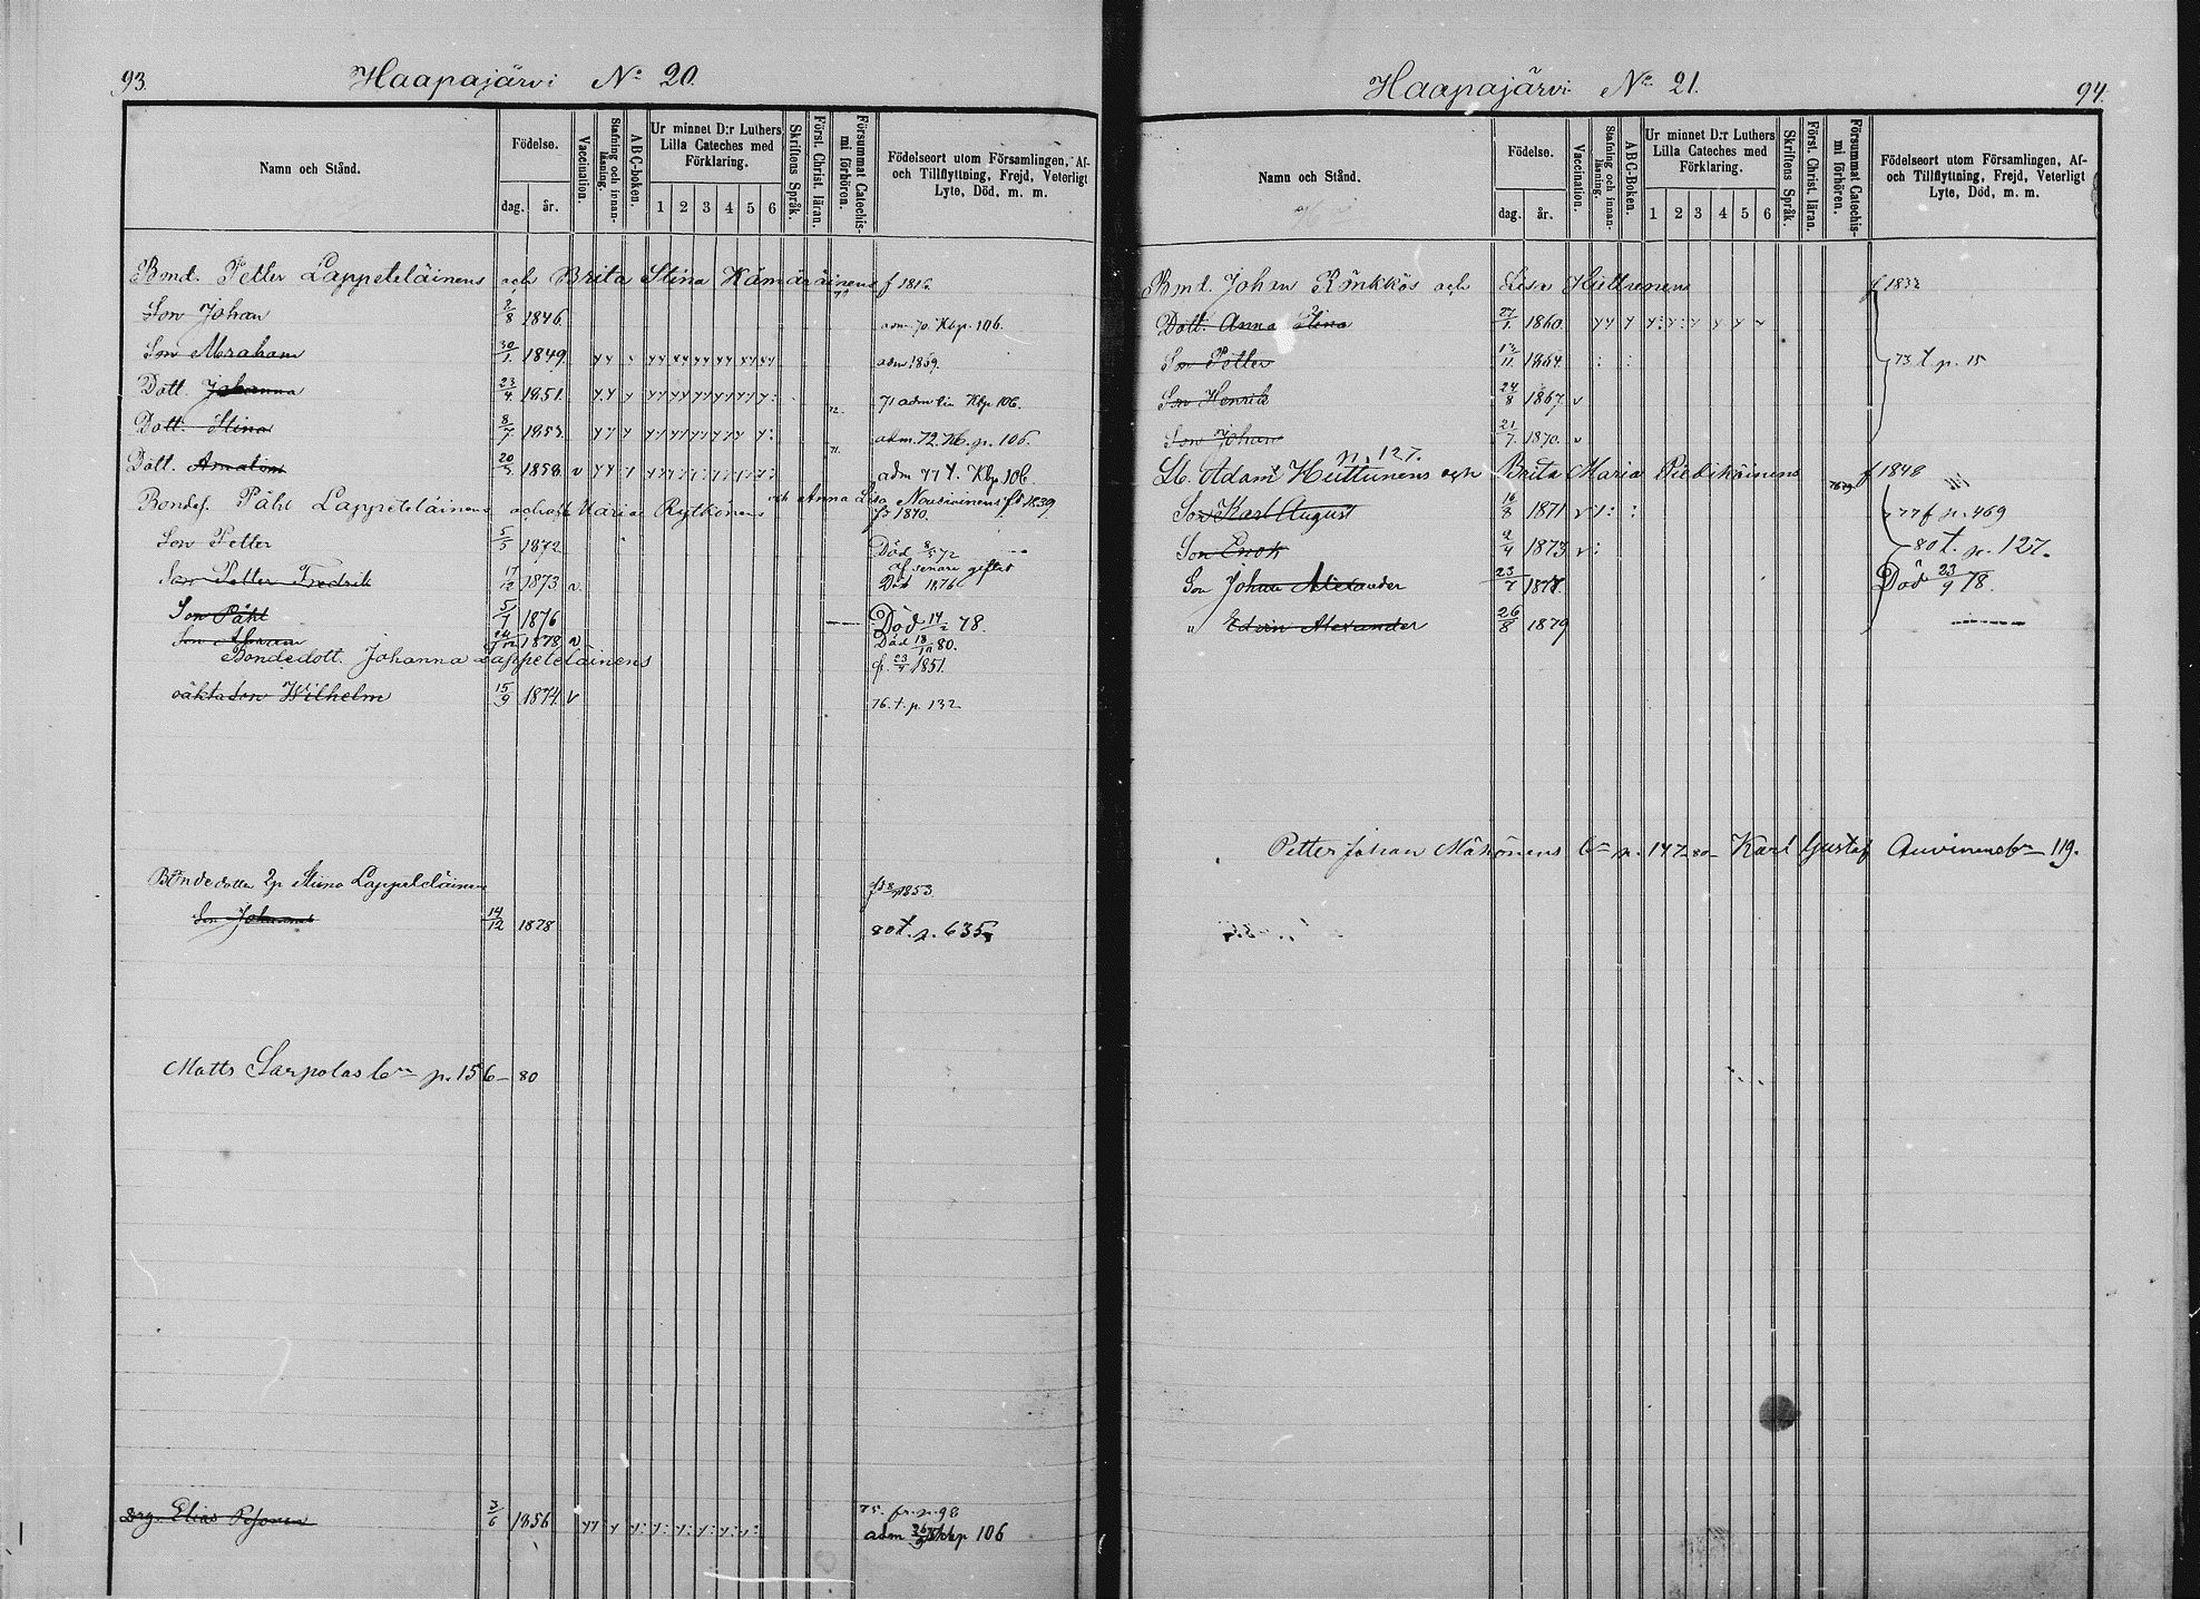 93. Haapajärvi No 20.
Namn och Stånd.
Födelse.
dag. år.
Vaccination.
Stafning och innanläsning.
ABC-boken.
Ur minnet D:r Luthers Lilla Cateches med Förklaring.
1 2 3 4 5 6
Skriftens Språk.
Först. Christ. läran.
Försummat Catechismi förhören.
Födelseort utom Församlingen, Af- och Tillflyttning, Frejd, Veterligt Lyte, Död, m. m.
Bond. Petter Lappeteläinens och Brita Stina Hämäräinens f 1816
Son Johan 2/8 1846. adm. 70. Kbp. 106.
Son Abraham 30/1. 1849. adm 1869.
Dott. Johanna 23/4 1851. 72. 71 adm Kbp 106.
Dott. Stina 8/7 1853. 71. adm. 72. Kb. p. 106.
Dött. 1858. v adm 77 t. Kbp 106
Bondes. Påhl Lappeteläinens Maria Rytkönens och Anna Lisa Nousiainens 1839 1840.
Son Petter 5/5 1872 Död 8/5 72
af senare giftet
Son Petter Fredrik 17/12 1873 v. Död 1876
Son Påhl 5/1 1876 Död 14/2 78.
Son 1878 v Död 80.
Bondedott. Johanna Lappeteläinens f. 23/4 1851.
oäkta son Wilhelm 15/9 1874. v 76. t. p. 132
Bondedotter Stina Lappeteläinens 1853.
Son 14/12 1878 80 t. p. 635
Matts Sarpolas p. 156 - 80
Drg. Elias 3/6 1856 75. fr. p. 98
adm Kbp 106
Haapajärvi No 21. 94.
Namn och Stånd.
Födelse.
dag. år.
Vaccination.
Stafning och innanläsning.
ABC-Boken.
Ur minnet D:r Luthers Lilla Cateches med Förklaring.
1 2 3 4 5 6
Skriftens Språk.
Först. Christ. läran.
Försummat Catechismi förhören.
Födelseort utom Församlingen, Af- och Tillflyttning, Frejd, Veterligt Lyte, Död, m. m.
Bond. Johan Rönkkös och Lisa Huttunens f 1832
Dött. Anna Stina 27/1. 1860.
Son Petter 13/11. 1864. 73 t. p. 15
Son Henrik 24/8 1867. v
Son Johan 21/7. 1870. v
p. 127.
Lb. Adam Huttunens och Brita Maria f 1848
Son Karl August 16/8 1871 v 77 f p. 469
Son Enok 2/4 1873 v 80 t. p. 127.
Son Johan Alexander 23/7 1877. Död 23/9 78.
" Edvin Alexander 26/8 1879
Petter Johan p. 147-80- Karl Gustaf Auvinens 119.